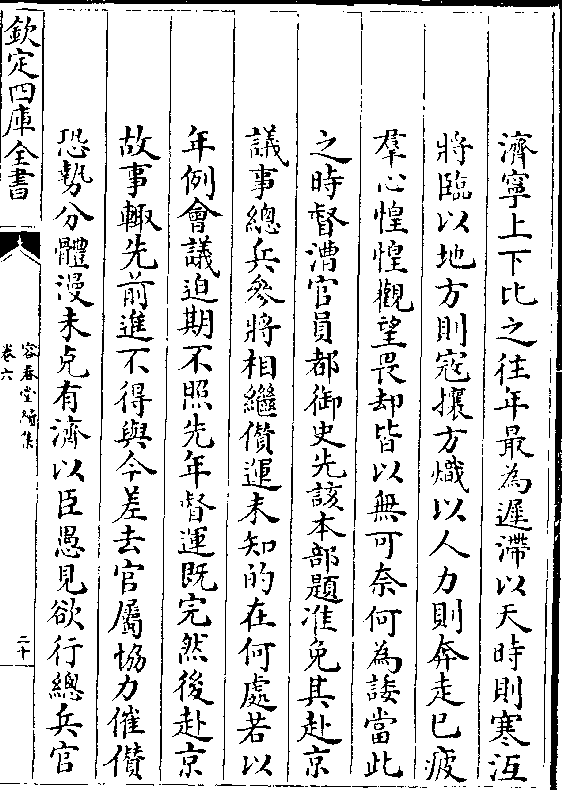 濟寧上下比之往年最為遲滯以天時則寒沍
將臨以地方則寇攘方熾以人力則奔走已疲
羣心惶惶觀望畏却皆以無可奈何為諉當此
之時督漕官員都御史先該本部題准免其赴京
議事總兵參將相繼儹運未知的在何處若以
年例會議迫期不照先年督運既完然後赴京
故事輙先前進不得與今差去官屬協力催儹
恐勢分體漫未克有濟以臣愚見欲行總兵官
欽定四庫全書
容春堂續集
卷六
二十